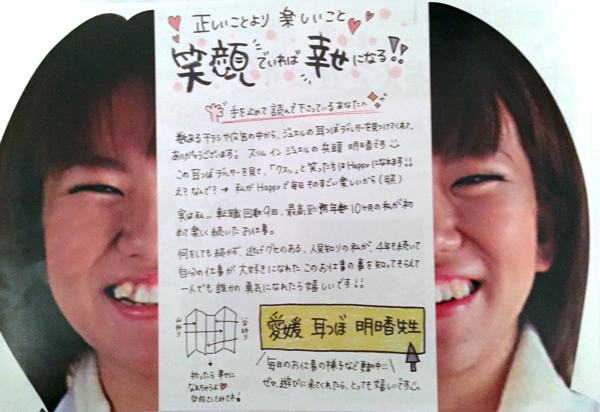 正しいことより 楽しいこと
笑顔でいれば 幸せになる!!
手を止めて 読んで下さっているあなたへ
数あるチラシや広告の中から、ジュエルの耳つぼラブレターを見つけてくれて、
ありがとうございます。スリム イン ジュエルの兵頭 明日香です
この耳つぼラブレターを見て、「クスッ」と笑った方はHappyになれます!!
え?なんで? → 私がHappyで毎日ものすごい楽しいから(照)
実は私... 転職回数9回、最高 10ヶ月の私が初
めて楽しく続いたお仕事。
何をしても続かず、逃げグセのある、人見知りの私が、4年も続いて
自分の仕事が 大好きになれた このお仕事の事を知ってもらえて
一人でも誰かの 勇気になれたら嬉しいです!!
山折り
谷折り
折ったら 幸せに
なれちゃうよ
完成さしてみてネ!
愛媛 耳つぼ 明日香先生
毎日のお仕事の様子など更新中!!
ぜひ、遊びに来てくれたら、とっても嬉しいです